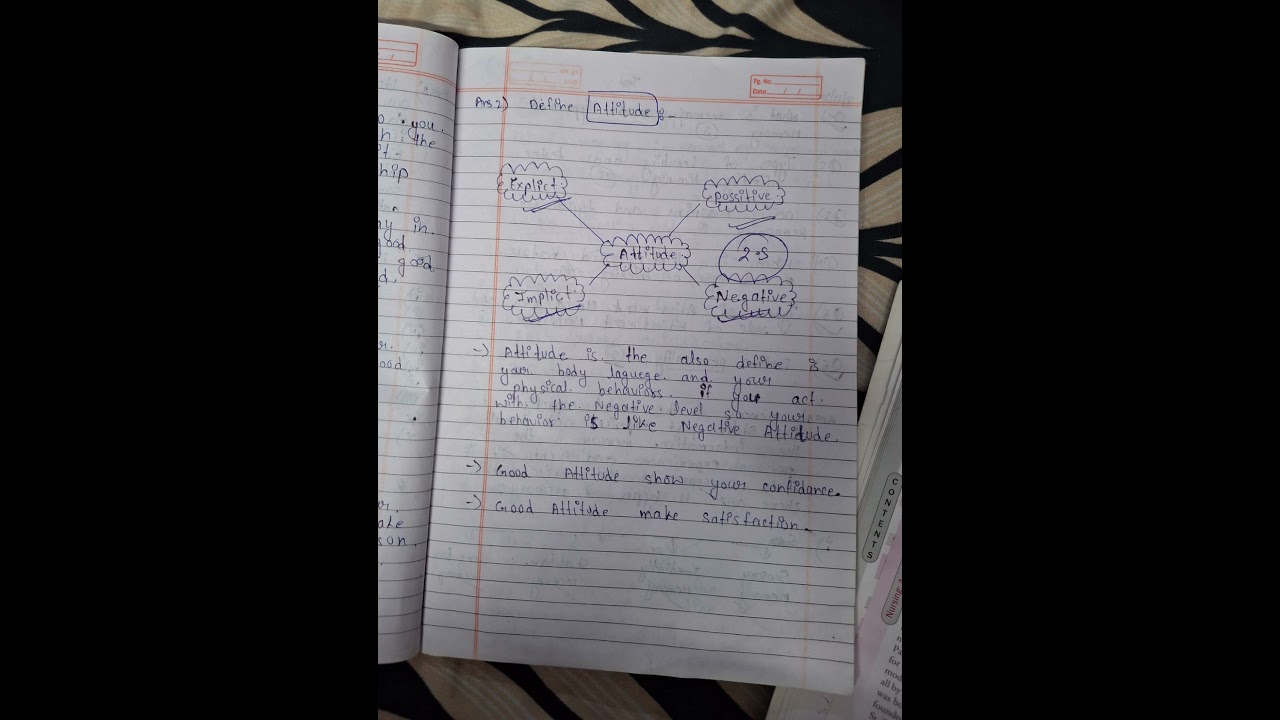 Pg. No.
Date / /
Ans 2) Define Attitude :-
Explict
Possitive
Attitude
2.5
Implict
Negative
-) Attitude is. the also define is
your body laguege and your
physical behaviors. if your act.
with the Negative level so your
behavior is like Negative Attitude.
-) Good Attitude show your confidance.
-) Good Attitude make satisfaction.
you.
the
hip
in.
good.
good
d.
r.
ood
son.
CONTENTS
Nursing
for
mod
all by
was bo
founde